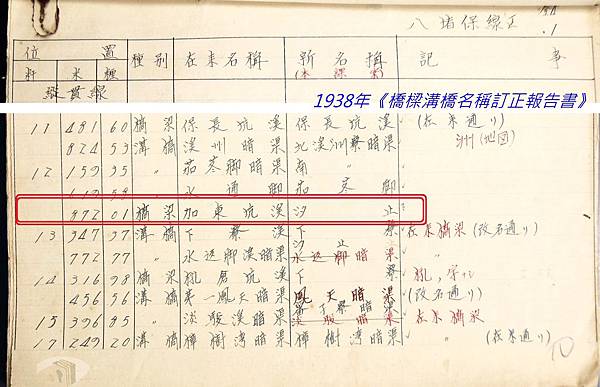 八堵保線区
.1
位置 種別 在来名称 新名稱 記事
粁 米 糎 (本課案)
縱貫線
1938年《橋樑溝橋名稱訂正報告書》
11 481 60 橋梁 保長坑溪 保長坑溪 (在来通り)
824 53 溝橋 溪州暗渠 北溪洲寮暗渠 洲(地図)
12 159 35 〃 茄苳脚暗渠 南
茄苳脚
872 01 橋梁 加東坑溪 汐止
13 347 37 溝橋 下寮溪 下寮 在来橋梁(改名通り)
汐止
772 77 〃 水返脚溪暗渠 水返脚暗渠 〃
14 316 98 橋梁 坑 下寮
456 56 溝橋 第一鳳天暗渠 鳳天暗渠 (改名通り)
下寮暗渠
15 396 85 〃 暗渠 在来橋梁
17 249 20 溝橋 樟樹湾暗渠 樟樹湾暗渠 〃 (在来通り)
10